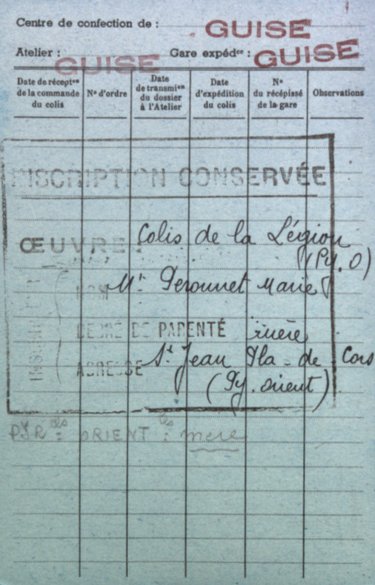 Centre de confection de : GUISE
Atelier : GUISE Gare expédre : GUISE
Date de récepton de la commande du colis
N° d'ordre
Date de transmion du dossier à l'Atelier
Date d'expédition du colis
N° du récépissé de la gare
Observations
INSCRIPTION CONSERVÉE
ŒUVRE : Colis de la Légion
(Py. O)
NOM Mr Peronnet Marie
DEGRÉ DE PARENTÉ mère
ADRESSE St Jean Pla - de Cors
(Py. orient)
PYR ées ORIENT les : mère